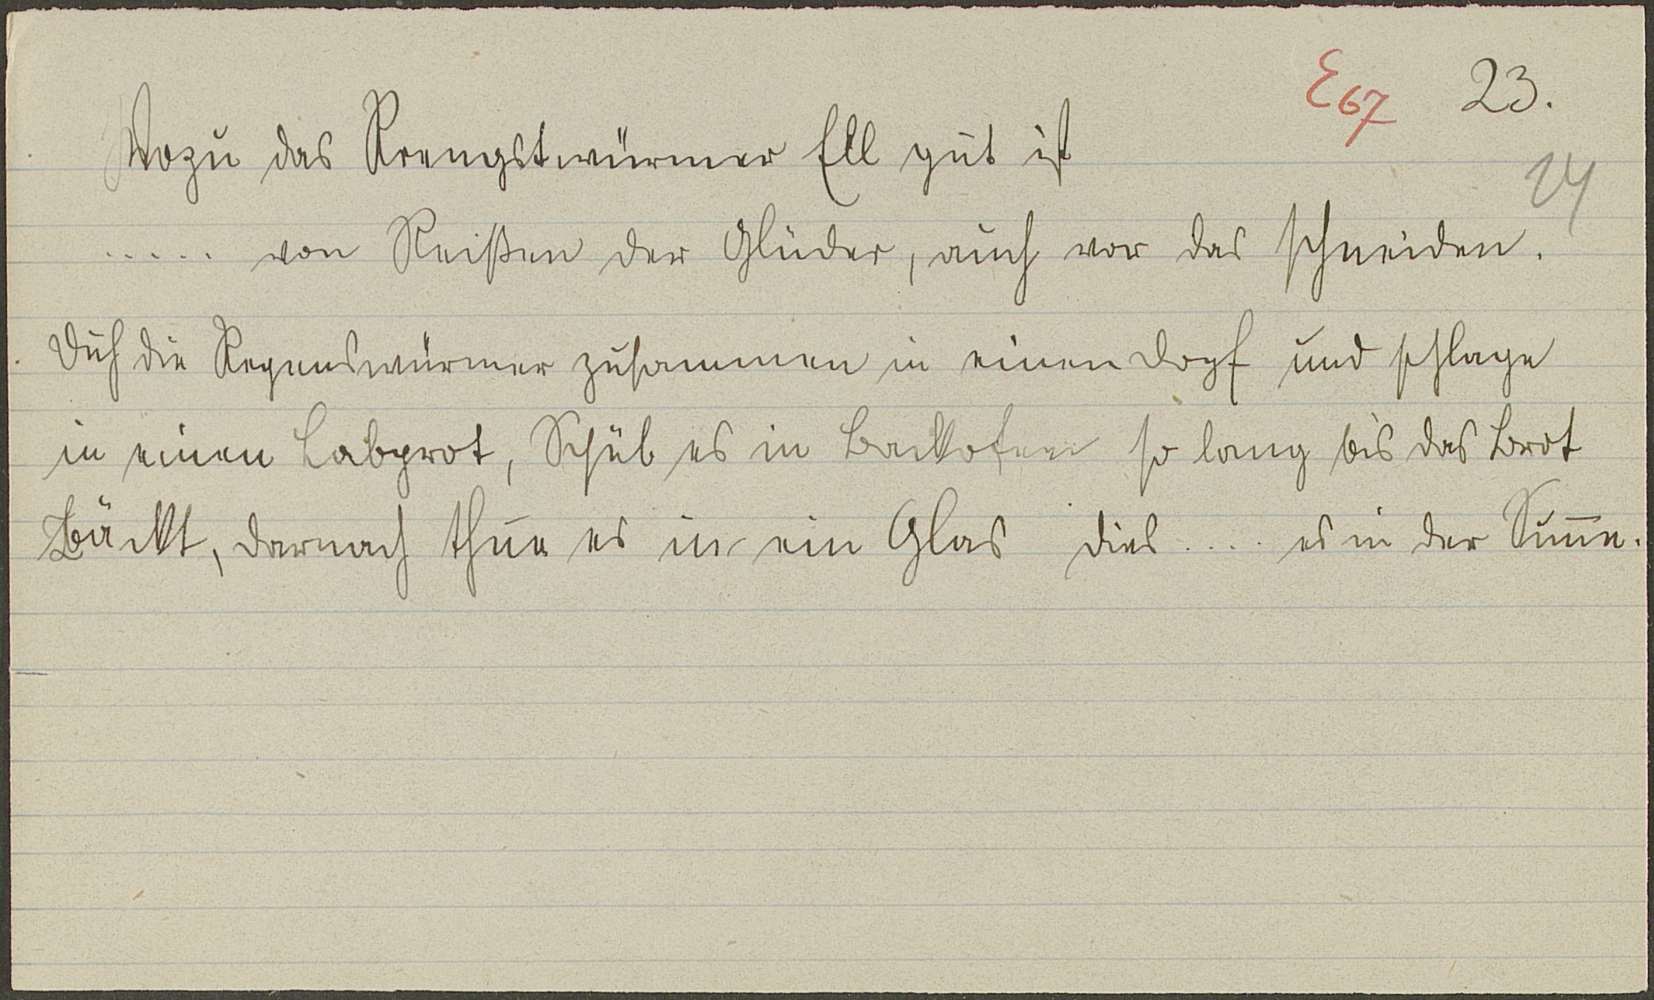 E67 23.
24
Wozu das Rrengstwürmer Ell gut ist
..... von Reißen der Glüder, auch vor das schneiden.
Duh die Regenswürmer zusammen in einen Dopf und schlage
in einen Labprot, Schüb es in Backofen so lang bis das Brot
Bäckt, darnach thue es in ein Glas dies .... es in der Sunne.